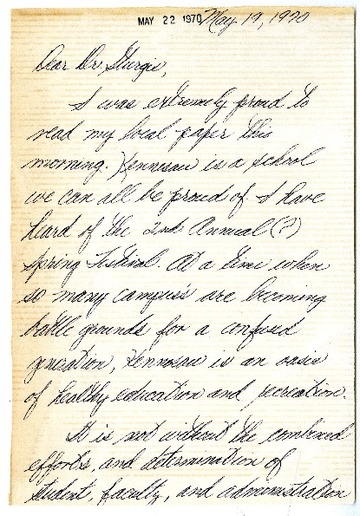 MAY 22 1970 May 19, 1970
Dear Dr. Sturgis,
I was extremely proud to
read my local paper this
morning. Kennesaw is a school
we can all be proud of. I have
heard of the 2nd Annual (?)
Spring Festival. At a time when
so many campus's are becoming
battle grounds for a confused
, Kennesaw is an oasis
of healthy education and recreation.
It is not without the combined
efforts, and determination of
student, faculty, and administration